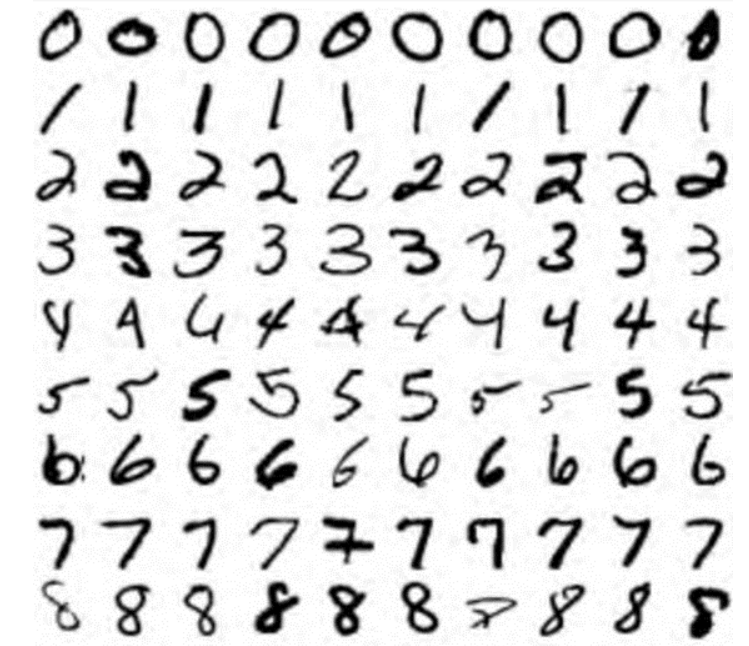 0 0 0 0 0 0 0 0 0 0
1 1 1 1 1 1 1 1 1 1
2 2 2 2 2 2 2 2 2 2
3 3 3 3 3 3 3 3 3 3
4 4 4 4 4 4 4 4 4 4
5 5 5 5 5 5 5 5 5 5
6 6 6 6 6 6 6 6 6 6
7 7 7 7 7 7 7 7 7 7
8 8 8 8 8 8 8 8 8 8